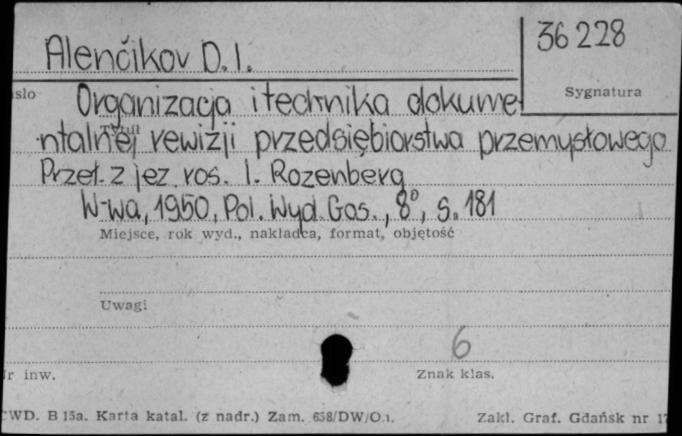 Alenčikov D.I.
36228
Sygnatura
sło
Organizacja i technika dokume-
Tytuł
ntalnej rewizji przedsiębiorstwa przemysłowego
Przeł. z jęz. ros. I. Rozenberg
W-wa, 1950, Pol. Wyd. Gos., 8°, s. 181
Miejsce, rok wyd., nakładca, format, objętość
Uwagi
6
r inw.
Znak klas.
WD. B 15a. Karta katal. (z nadr.) Zam. 638/DW/O.1.
Zakł. Graf. Gdańsk nr 1